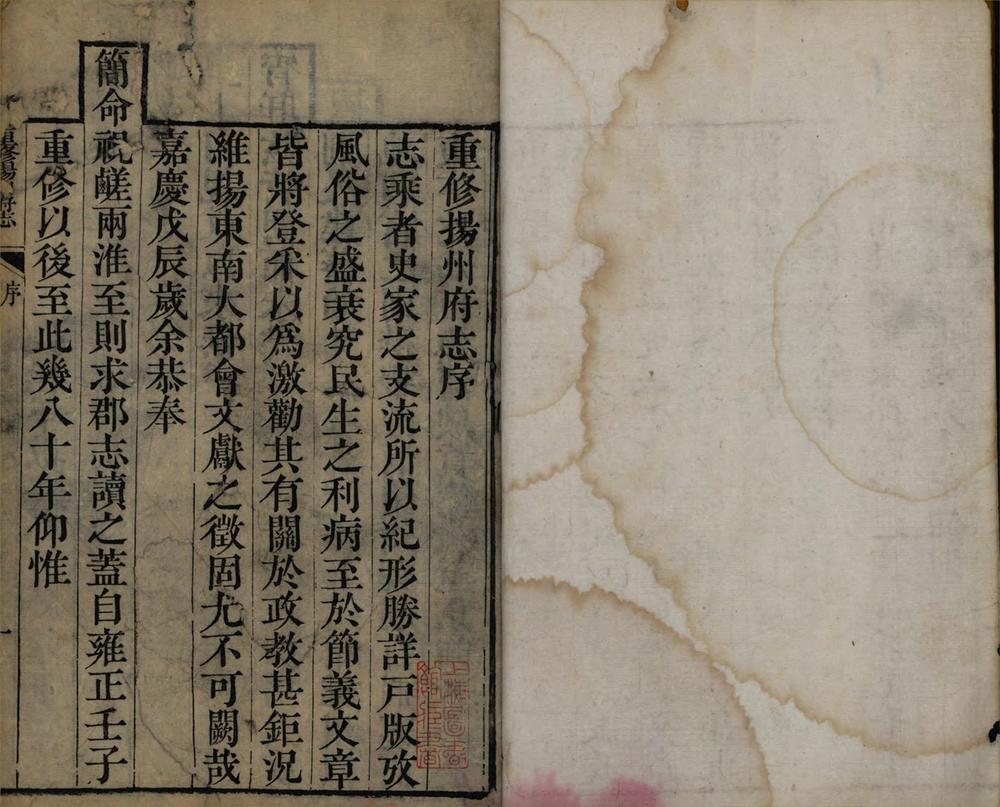 重修揚州府志序
志乘者史家之支流所以紀形勝詳戸版攷
風俗之盛衰究民生之利病至於節義文章
皆將登釆以爲激勸其有關於政教甚鉅況
維揚東南大都會文獻之徵固尤不可闕哉
嘉慶戊辰歲余恭奉
簡命視鹺兩淮至則求郡志讀之蓋自雍正壬子
重修以後至此幾八十年仰惟
重修揚州府志
序
一